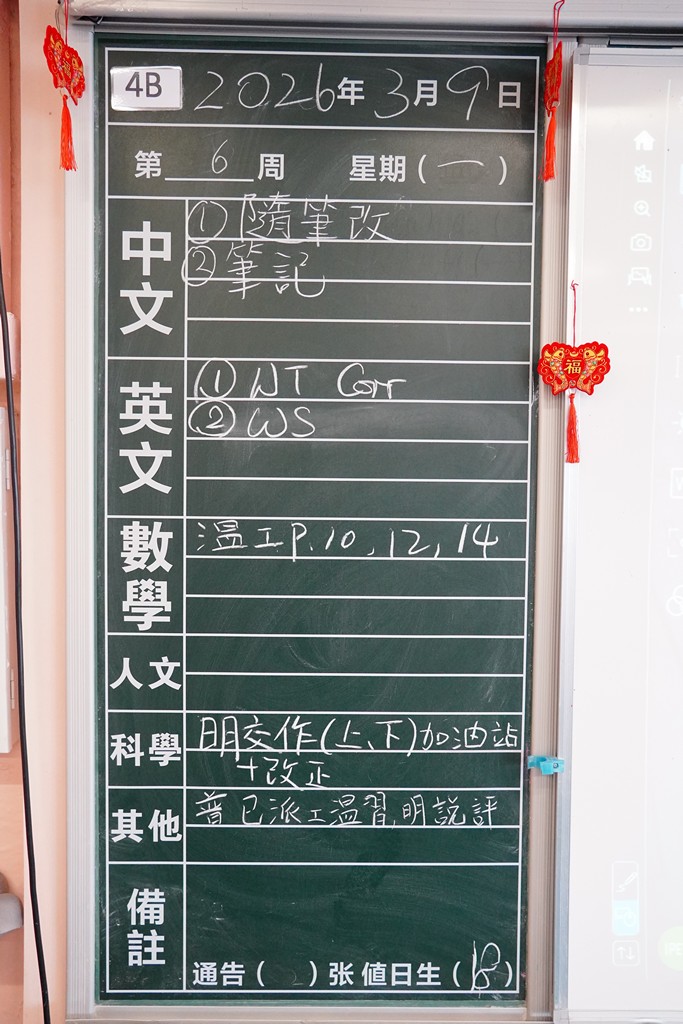 4B 2026年3月9日
第 6 周 星期(一)
中文
①隨筆改
②筆記
英文
① WT Corr
② WS
數學
溫工P.10,12,14
人文
科學
明交作(上、下)加油站
+改正
其他
普已派工溫習,明說評
備註
通告( )张 值日生(18)
福